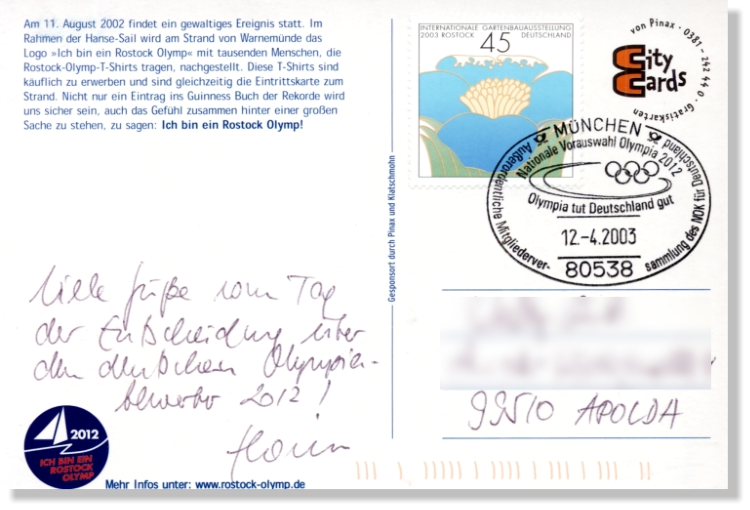 Am 11. August 2002 findet ein gewaltiges Ereignis statt. Im
Rahmen der Hanse-Sail wird am Strand von Warnemünde das
Logo »Ich bin ein Rostock Olymp« mit tausenden Menschen, die
Rostock-Olymp-T-Shirts tragen, nachgestellt. Diese T-Shirts sind
käuflich zu erwerben und sind gleichzeitig die Eintrittskarte zum
Strand. Nicht nur ein Eintrag ins Guinness Buch der Rekorde wird
uns sicher sein, auch das Gefühl zusammen hinter einer großen
Sache zu stehen, zu sagen: Ich bin ein Rostock Olymp!
INTERNATIONALE GARTENBAUAUSSTELLUNG
2003 ROSTOCK 45 DEUTSCHLAND
von Pinax · 0381 - 244 44 0 · Gratiskarten
City
Cards
MÜNCHEN
Nationale Vorauswahl Olympia 2012
Olympia tut Deutschland gut
12.-4.2003
80538
Außerordentliche Mitgliederver-
sammlung des NOK für Deutschland
Gesponsort durch Pinax und Klatschmohn
Viele Grüße vom Tag
der Entscheidung über
den deutschen Olympia-
bewerber 2012!
99510 APOLDA
2012
ICH BIN EIN
ROSTOCK
OLYMP
Mehr Infos unter: www.rostock-olymp.de